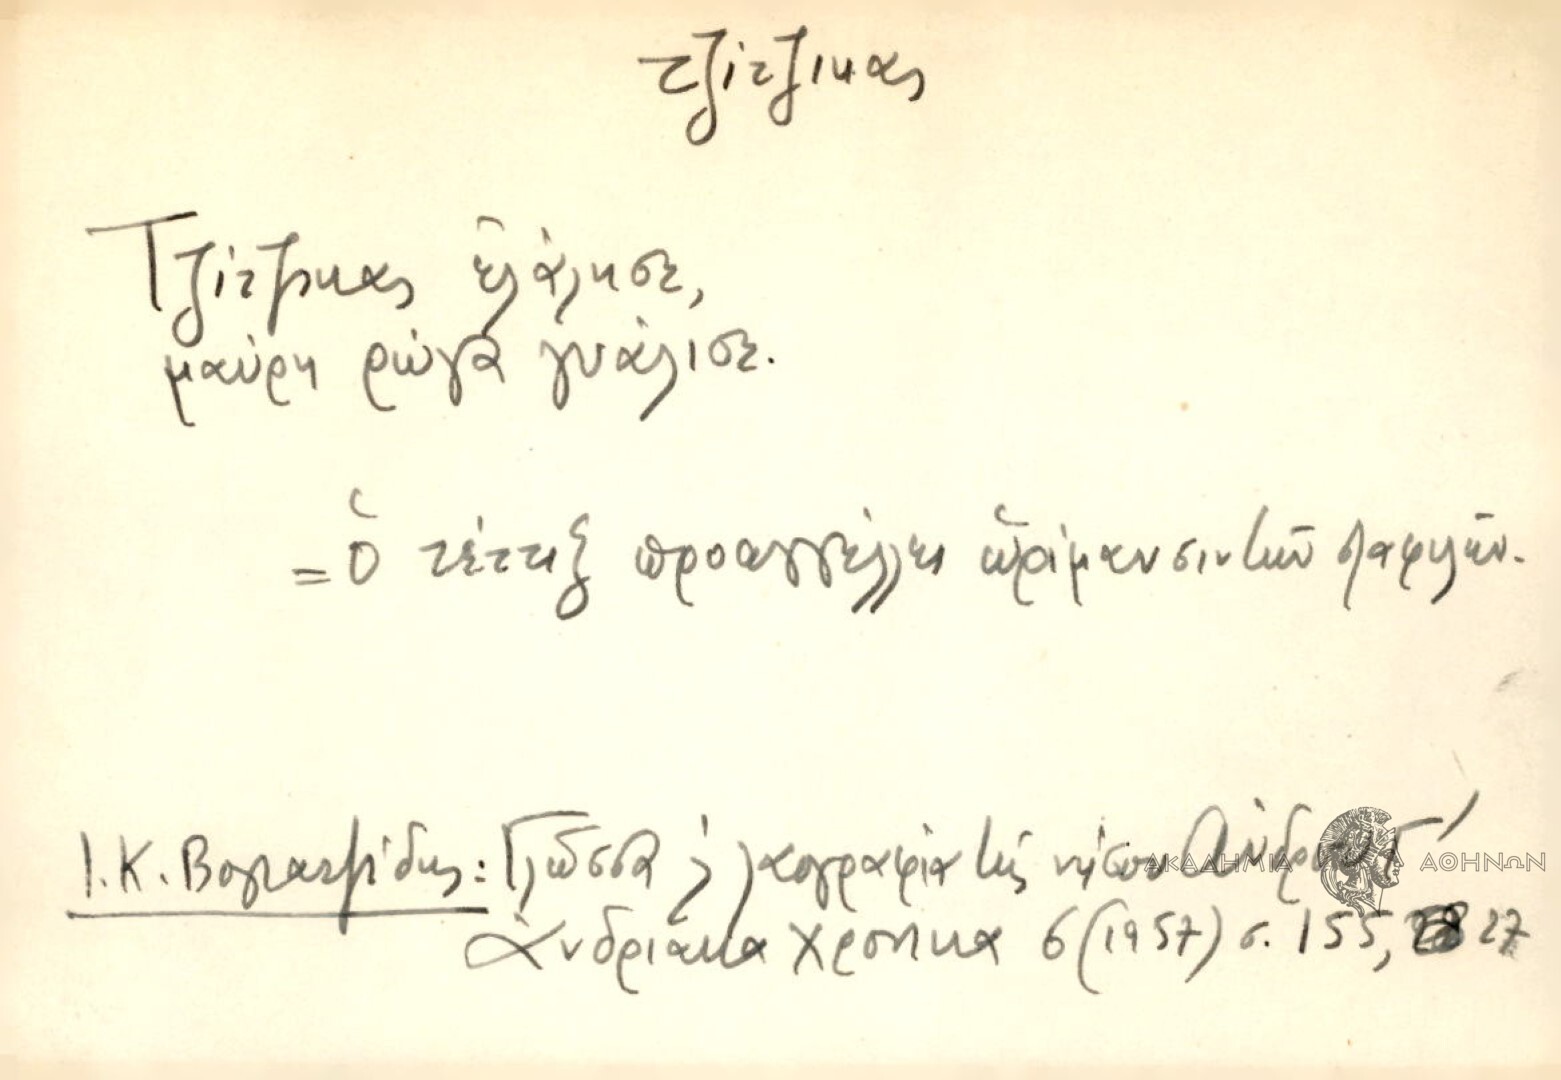 τζίτζικας
Τζίτζικας ἐλάλησε,
μαύρη ρώγα γυάλισε.
= Ὁ τέττιξ προαγγέλλει ὡρίμανσιν τῶν σταφυλῶν.
Ι. Κ. Βογιατζίδης: Γλῶσσα κ̀ λαογραφία τῆς νήσου Ἄνδρου Γ′
Ἀνδριακὰ Χρονικὰ 6 (1957) σ. 155, 27
ΑΚΑΔΗΜΙΑ ΑΘΗΝΩΝ